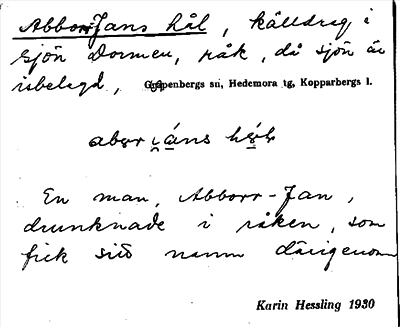 Abborr-Jans hål, källdrag i
sjön Dormen, råk, då sjön är
isbelagd, Garpenbergs sn, Hedemora tg, Kopparbergs l.
En man, Abborr-Jan,
drunknade i råken, som
fick sitt namn därigenom
Karin Hessling 1930